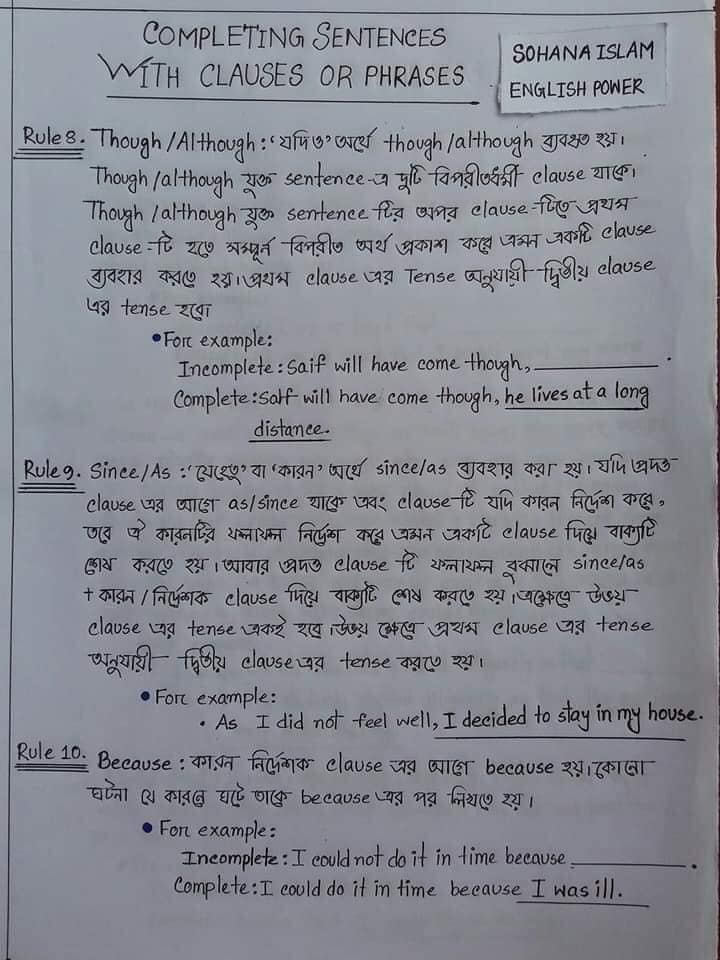 COMPLETING SENTENCES
WITH CLAUSES OR PHRASES
SOHANA ISLAM
ENGLISH POWER
Rule 8. Though /Although : 'যদিও' অর্থে though /although ব্যবহৃত হয়।
Though /although যুক্ত sentence-এ দুটি বিপরীতধর্মী clause থাকে।
Though /although যুক্ত sentence টির অপর clause-টিতে প্রথম
clause-টি হতে সম্পূর্ন বিপরীত অর্থ প্রকাশ করে এমন একটি clause
ব্যবহার করতে হয়। প্রথম clause এর Tense অনুযায়ী দ্বিতীয় clause
এর tense হবে।
• For example:
Incomplete : Saif will have come though, ________ .
Complete : Saif will have come though, he lives at a long
distance.
Rule 9. Since/As : 'যেহেতু' বা 'কারন' অর্থে since/as ব্যবহার করা হয়। যদি প্রদত্ত
clause এর আগে as/since থাকে এবং clause-টি যদি কারন নির্দেশ করে,
তবে ঐ কারনটির ফলাফল নির্দেশ করে এমন একটি clause দিয়ে বাক্যটি
শেষ করতে হয়। আবার প্রদত্ত clause টি ফলাফল বুঝালে since/as
+ কারন / নির্দেশক clause দিয়ে বাক্যটি শেষ করতে হয়। এক্ষেত্রে উভয়
clause এর tense একই হবে। উভয় ক্ষেত্রে প্রথম clause এর tense
অনুযায়ী দ্বিতীয় clause এর tense করতে হয়।
• For example:
• As I did not feel well, I decided to stay in my house.
Rule 10. Because : কারন নির্দেশক clause এর আগে because হয়। কোনো
ঘটনা যে কারনে ঘটে তাকে because এর পর লিখতে হয়।
• For example:
Incomplete : I could not do it in time because ________ .
Complete : I could do it in time because I was ill.